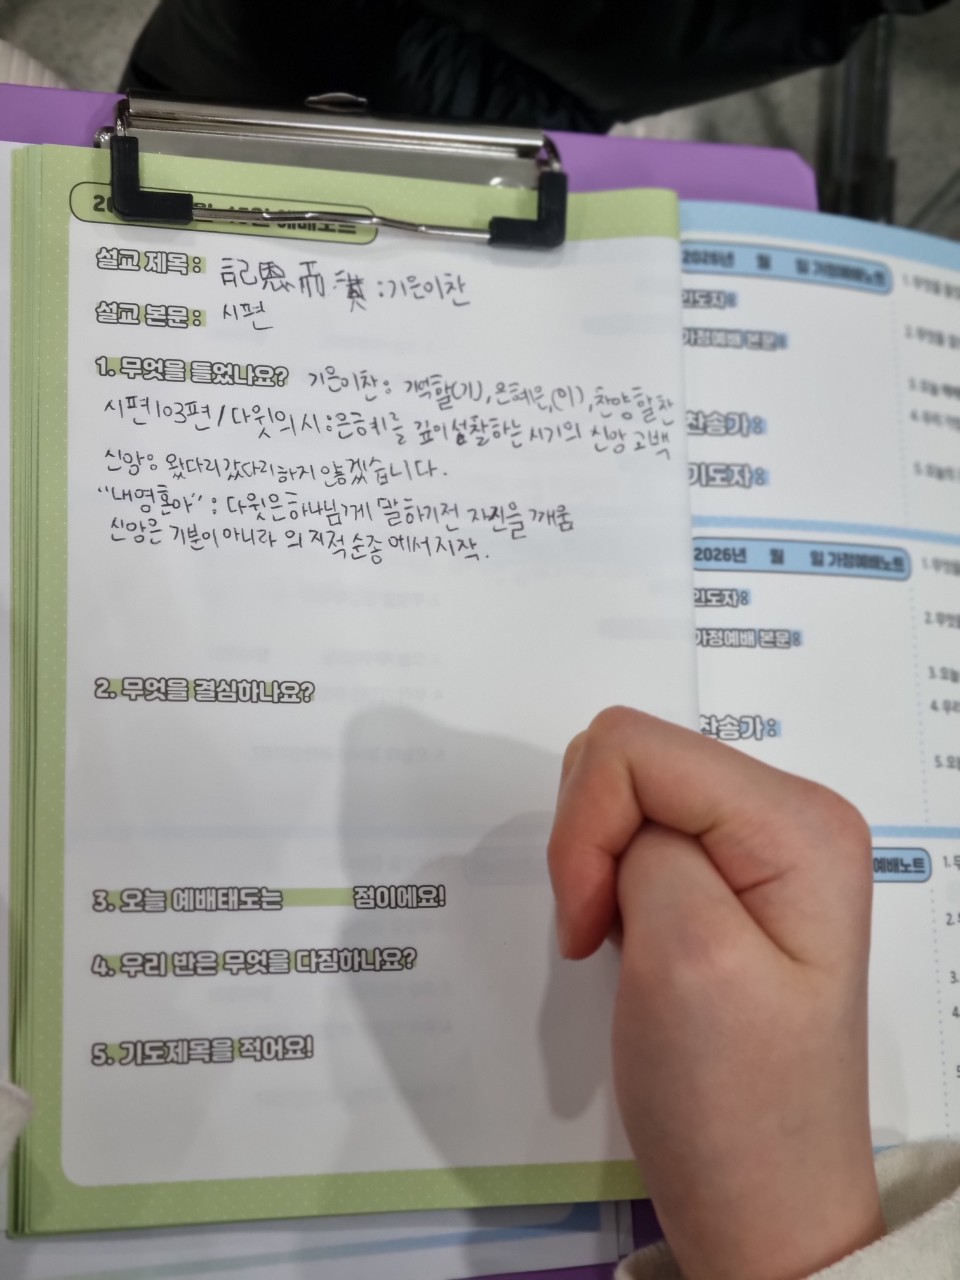 월 15일 예배노트
설교 제목 : 記恩而讚 : 기은이찬
설교 본문 : 시편
1. 무엇을 들었나요? 기은이찬 : 기억할(기), 은혜은, (이), 찬양할찬
시편103편 / 다윗의 시 : 은혜를 깊이 성찰하는 시기의 신앙 고백
신앙 : 왔다리갔다리하지 않겠습니다.
"내영혼아" : 다윗은하나님께 말하기전 자신을 깨움
신앙은 기분이 아니라 의지적 순종 에서 시작.
2. 무엇을 결심하나요?
3. 오늘 예배태도는 점이에요!
4. 우리 반은 무엇을 다짐하나요?
5. 기도제목을 적어요!
2026년 월 일 가정예배노트
인도자 :
가정예배 본문 :
찬송가 :
기도자 :
2026년 월 일 가정예배노트
인도자 :
가정예배 본문 :
찬송가 :
예배노트
1. 무엇을
2. 무엇을
3. 오늘
4. 우리
5. 오늘